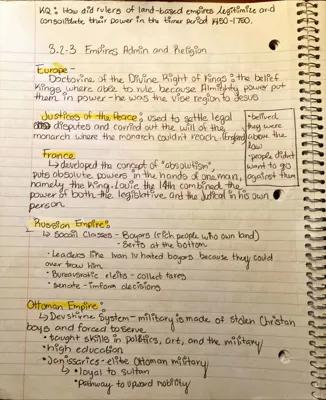 KQ: How did rulers of land-based empires legitimize and
consolidate their power in the time period 1450-1750.
3.2-3 Empires Admin and Religion
Europe-
Doctorine of the Divine Right of Kings: the belief
Kings where able to rule because Almighty power put
them in power - he was the vise region to Jesus
Justices of the Peace: used to settle legal
disputes and carried out the will of the
monarch where the monarch couldn't reach. (England)
• belived
they were
above the
law
• people didn't
want to go
against them
France
↳ developed the concept of "absolutism".
puts absolute powers in the hands of one man,
namely the King. Louie the 14th combined the
power of both the legislative and the Judical in his own
person.
Russian Empire:
↳ Social Classes - Boyers (rich people who own land)
- Serfs at the bottom
• Leaders like Ivan IV hated boyers because they could
over trow him
• Bureausratic eleits - collect taxes
• senate - inform decisions
Ottoman Empire:
↳ Devshirme System - military is made of stolen Christan
boys and forced to serve
• taught skills in politics, art, and the military
• high education
• Janissaries - elite Ottoman military
↳ • loyal to sultan
• Pathway to upward mobility